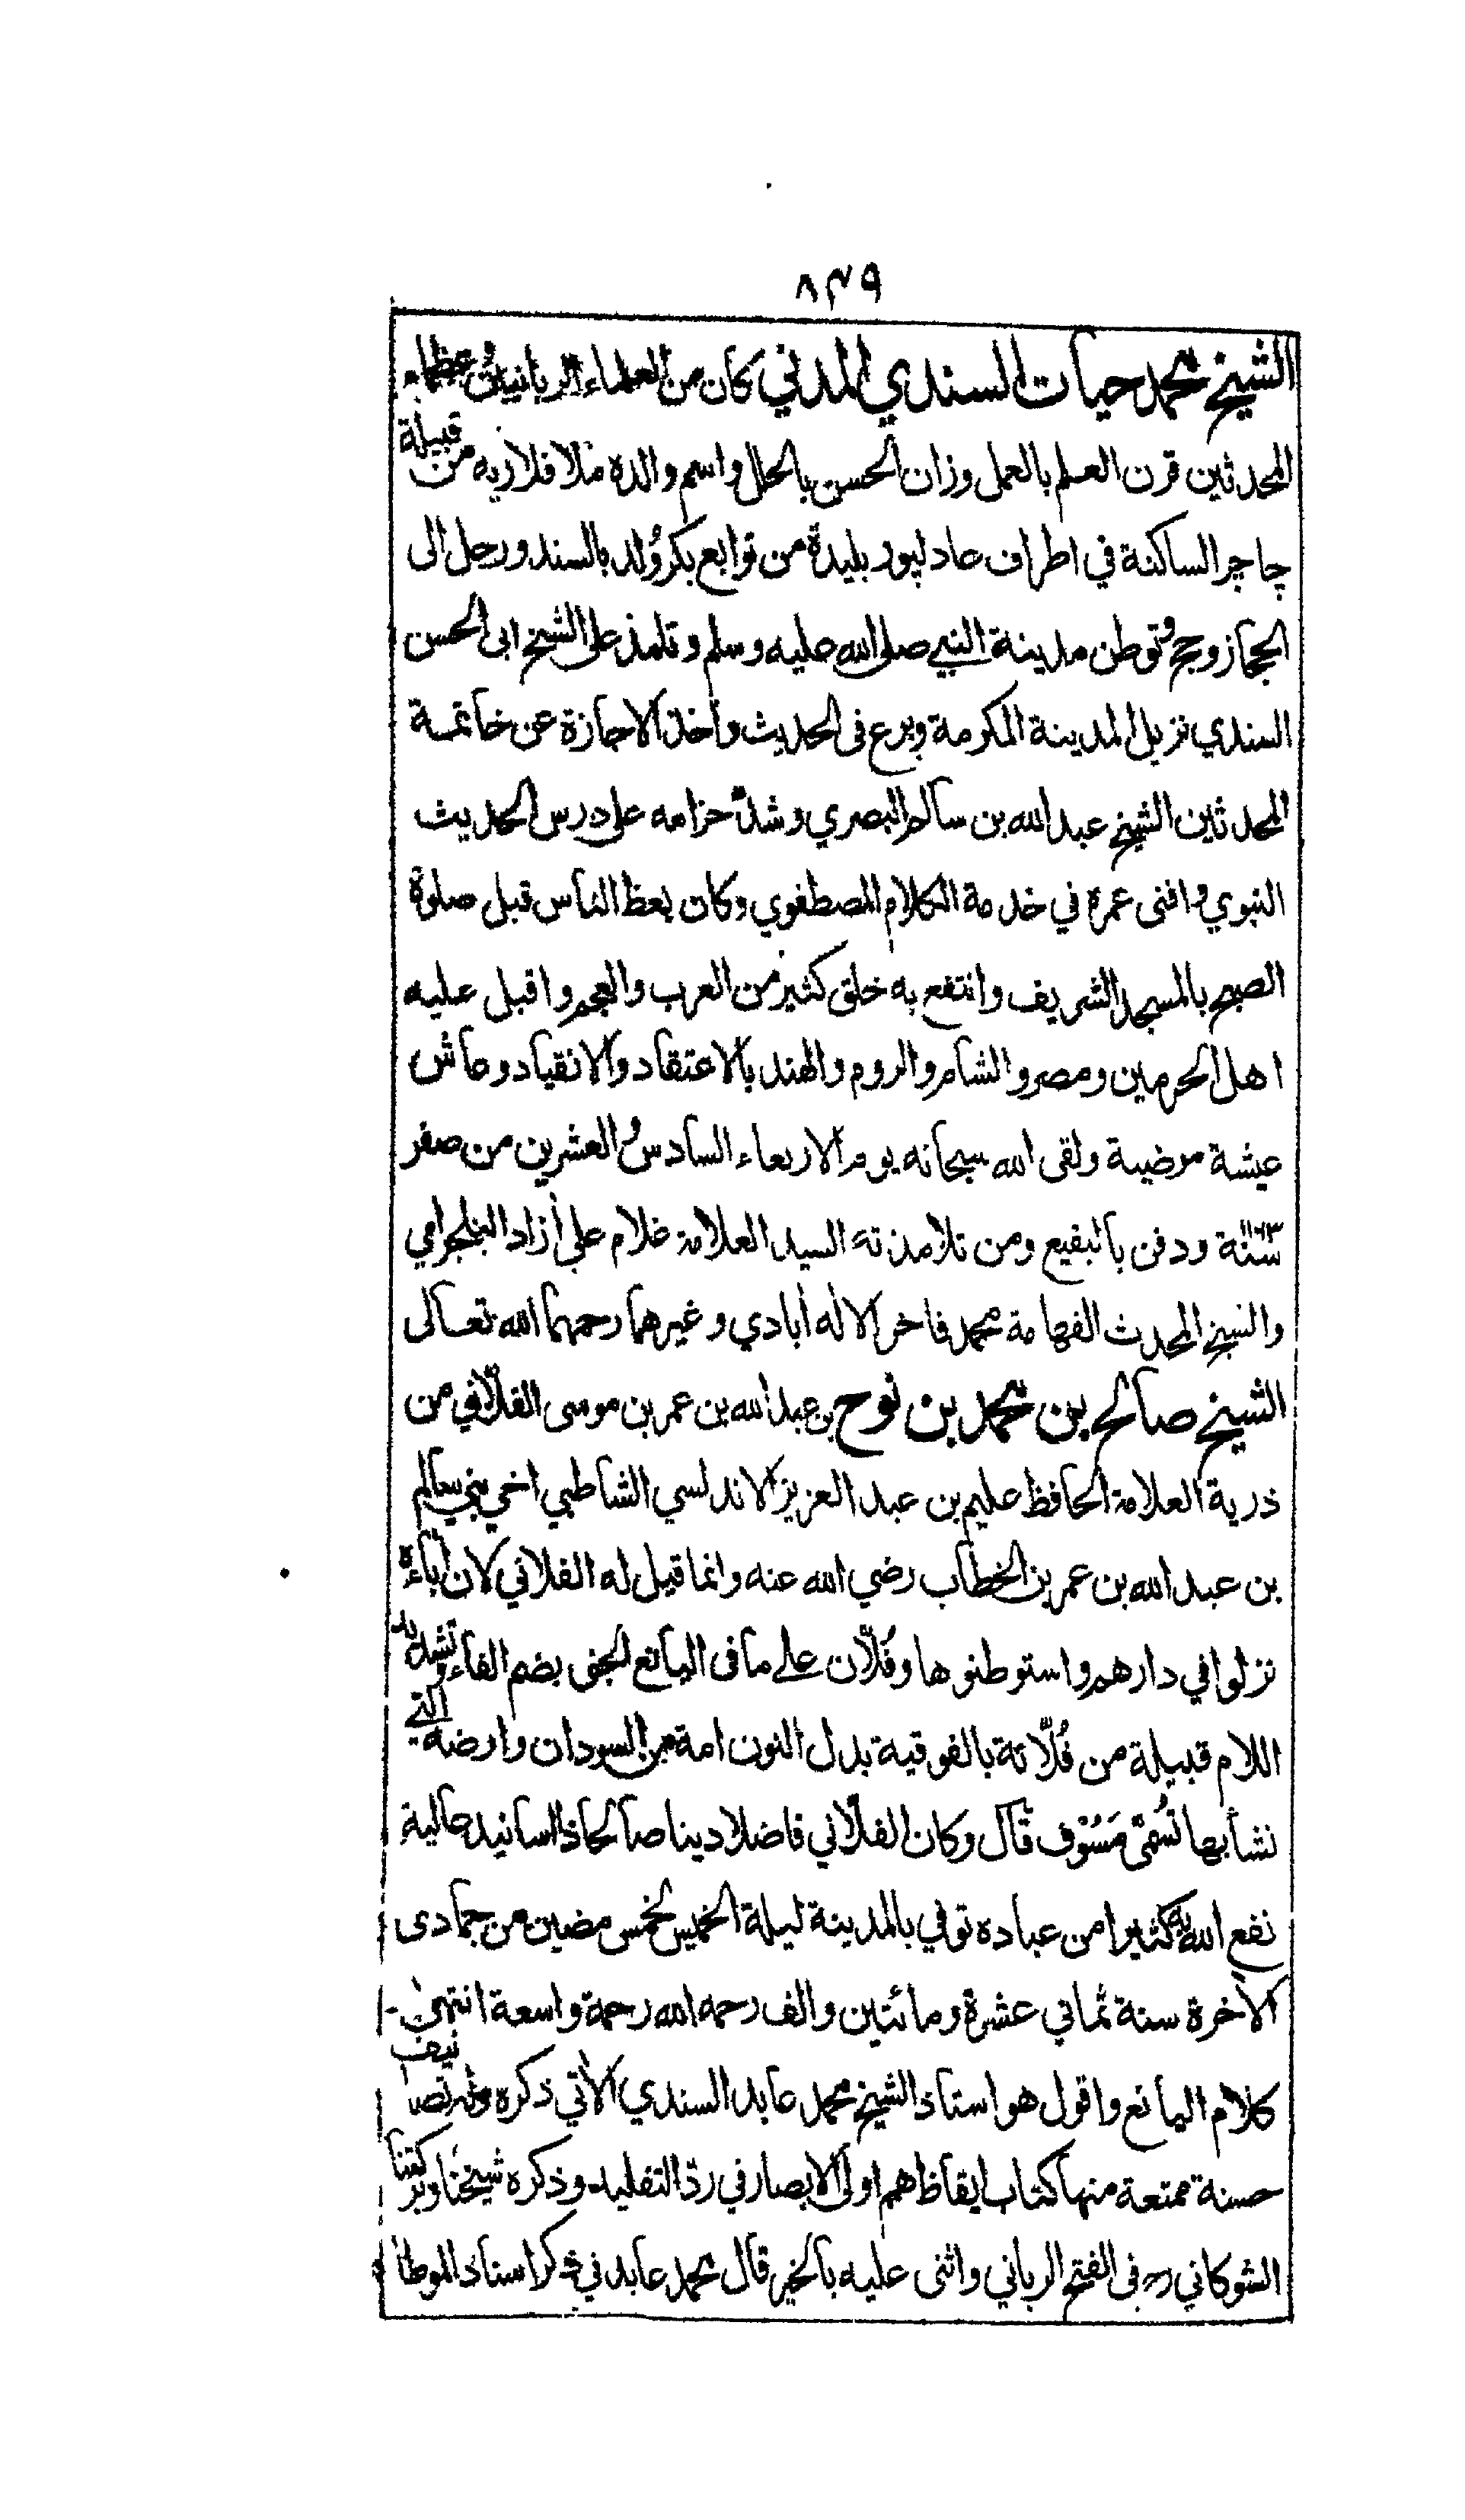 ٨٤٩
الشيخ محمد حيات السندي المدني كان من العلماء الربانيين وعظماء
المحدثين قرن العلم بالعمل وزان الحسن بالحلل واسم والده ملا فلاريه من قبيلة
چاچر الساكنة في اطراف عادلپور بليدة من توابع بكر وُلد بالسند ورحل الى
الحجاز وحج وتوطن مدينة النبي صلى الله عليه وسلم وتلمذ على الشيخ ابى الحسن
السندي نزيل المدينة المكرمة وبرع فى الحديث واخذ الاجازة عن خاتمة
المحدثين الشيخ عبد الله بن سالم البصري وشدّ حزامه على درس الحديث
النبوي وافنى عمره في خدمة الكلام المصطفوي وكان يعظ الناس قبل صلوة
الصبح بالمسجد الشريف وانتفع به خلق كثير من العرب والعجم واقبل عليه
اهل الحرمين ومصر والشام والروم والهند بالاعتقاد والانقياد وعاش
عيشة مرضية ولقى الله سبحانه يوم الاربعاء السادس والعشرين من صفر
سنة ١١٦٣ ودفن بالبقيع ومن تلامذته السيد العلامة غلام علي أزاد البلجرامي
والشيخ المحدث الفهامة محمد فاخر الاله أبادي وغيرهما رحمهما الله تعالى
الشيخ صالح بن محمد بن نوح بن عبد الله بن عمر بن موسى الفلّاني من
ذرية العلامة الحافظ عليم بن عبد العزيز الاندلسي الشاطبي اخي بني سالم
بن عبد الله بن عمر بن الخطاب رضي الله عنه وانما قيل له الفلاني لان أباءه
نزلوا في دارهم واستوطنوها وفُلّان على ما فى اليانع الجنى بضم الفاء وتشديد
اللام قبيلة من فُلّاتة بالفوقية بدل النون امة من السودان وارضه التي
نشأ بها تُسمّى مَسُوف قال وكان الفلّاني فاضلا دينا صالحا ذا اسانيد عالية
نفع الله به كثيرا من عباده توفي بالمدينة ليلة الخميس لخمس مضين من جمادى
الأخرة سنة ثماني عشرة ومائتين والف رحمه الله رحمة واسعة انتهى
كلام اليانع واقول هو استاذ الشيخ محمد عابد السندي الأتي ذكره وله تصانيف
حسنة ممتعة منها كتاب ايقاظ همم اولى الابصار في ردّ التقليد وذكره شيخنا وبركتنا
الشوكاني رح فى الفتح الرباني واثنى عليه بالخير قال محمد عابد في ذكر اسناد الموطا